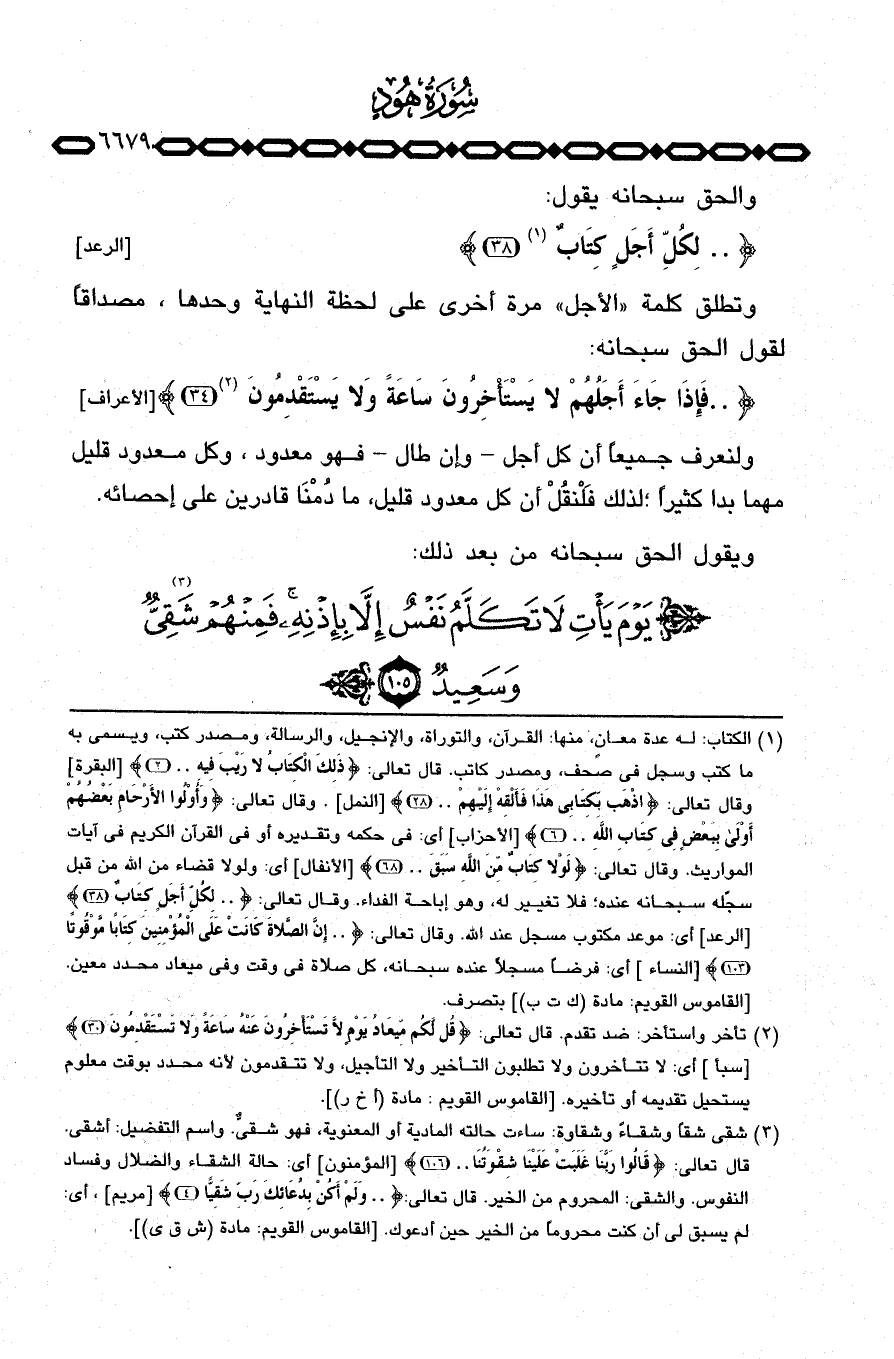 سُورَةُ هُودٍ
٦٦٧٩
والحق سبحانه يقول:
﴿ .. لِكُلِّ أَجَلٍ كِتَابٌ (١) (٣٨) ﴾ [الرعد]
وتطلق كلمة «الأجل» مرة أخرى على لحظة النهاية وحدها ، مصداقاً
لقول الحق سبحانه:
﴿ ..فَإِذَا جَاءَ أَجَلُهُمْ لا يَسْتَأْخِرُونَ سَاعَةً وَلا يَسْتَقْدِمُونَ (٢) (٣٤) ﴾ [الأعراف]
ولنعرف جميعاً أن كل أجل – وإن طال – فهو معدود ، وكل معدود قليل
مهما بدا كثيراً ؛لذلك فَلْنقُلْ أن كل معدود قليل، ما دُمْنَا قادرين على إحصائه.
ويقول الحق سبحانه من بعد ذلك:
﴿ يَوْمَ يَأْتِ لَا تَكَلَّمُ نَفْسٌ إِلَّا بِإِذْنِهِۦ ۚ فَمِنْهُمْ شَقِىٌّ (٣)
وَسَعِيدٌ ١٠٥ ﴾
(١) الكتاب: له عدة معانٍ، منها: القرآن، والتوراة، والإنجيل، والرسالة، ومصدر كتب، ويسمى به
ما كتب وسجل فى صحف، ومصدر كاتب. قال تعالى: ﴿ ذَلِكَ الْكِتَابُ لا رَيْبَ فِيهِ .. (٢) ﴾ [البقرة]
وقال تعالى: ﴿ اذْهَب بِكِتَابِى هَذَا فَأَلْقِهْ إِلَيْهِمْ .. (٢٨) ﴾ [النمل] . وقال تعالى: ﴿ وَأُوْلُوا الأَرْحَامِ بَعْضُهُمْ
أَوْلَىٰ بِبَعْضٍ فِى كِتَابِ اللَّهِ .. (٦) ﴾ [الأحزاب] أى: فى حكمه وتقديره أو فى القرآن الكريم فى آيات
المواريث. وقال تعالى: ﴿ لَوْلا كِتَابٌ مِّنَ اللَّهِ سَبَقَ .. (٦٨) ﴾ [الأنفال] أى: ولولا قضاء من الله من قبل
سجّله سبحانه عنده؛ فلا تغيير له، وهو إباحة الفداء. وقال تعالى: ﴿ .. لِكُلِّ أَجَلٍ كِتَابٌ (٣٨) ﴾
[الرعد] أى: موعد مكتوب مسجل عند الله. وقال تعالى: ﴿ .. إِنَّ الصَّلاةَ كَانَتْ عَلَى الْمُؤْمِنِينَ كِتَابًا مَّوْقُوتًا
(١٠٣) ﴾ [النساء ] أى: فرضاً مسجلاً عنده سبحانه، كل صلاة فى وقت وفى ميعاد محدد معين.
[القاموس القويم: مادة (ك ت ب)] بتصرف.
(٢) تأخر واستأخر: ضد تقدم. قال تعالى: ﴿ قُل لَّكُم مِّيعَادُ يَوْمٍ لاَّ تَسْتَأْخِرُونَ عَنْهُ سَاعَةً وَلا تَسْتَقْدِمُونَ (٣٠) ﴾
[سبأ ] أى: لا تتأخرون ولا تطلبون التأخير ولا التأجيل، ولا تتقدمون لأنه محدد بوقت معلوم
يستحيل تقديمه أو تأخيره. [القاموس القويم : مادة (أ خ ر)].
(٣) شقى شقاً وشقاءً وشقاوة: ساءت حالته المادية أو المعنوية، فهو شقىٌّ. واسم التفضيل: أشقى.
قال تعالى: ﴿ قَالُوا رَبَّنَا غَلَبَتْ عَلَيْنَا شِقْوَتُنَا .. (١٠٦) ﴾ [المؤمنون] أى: حالة الشقاء والضلال وفساد
النفوس. والشقى: المحروم من الخير. قال تعالى:﴿ .. وَلَمْ أَكُنْ بِدُعَائِكَ رَبِّ شَقِيًّا (٤) ﴾ [مريم] ، أى:
لم يسبق لى أن كنت محروماً من الخير حين أدعوك. [القاموس القويم: مادة (ش ق ى)].